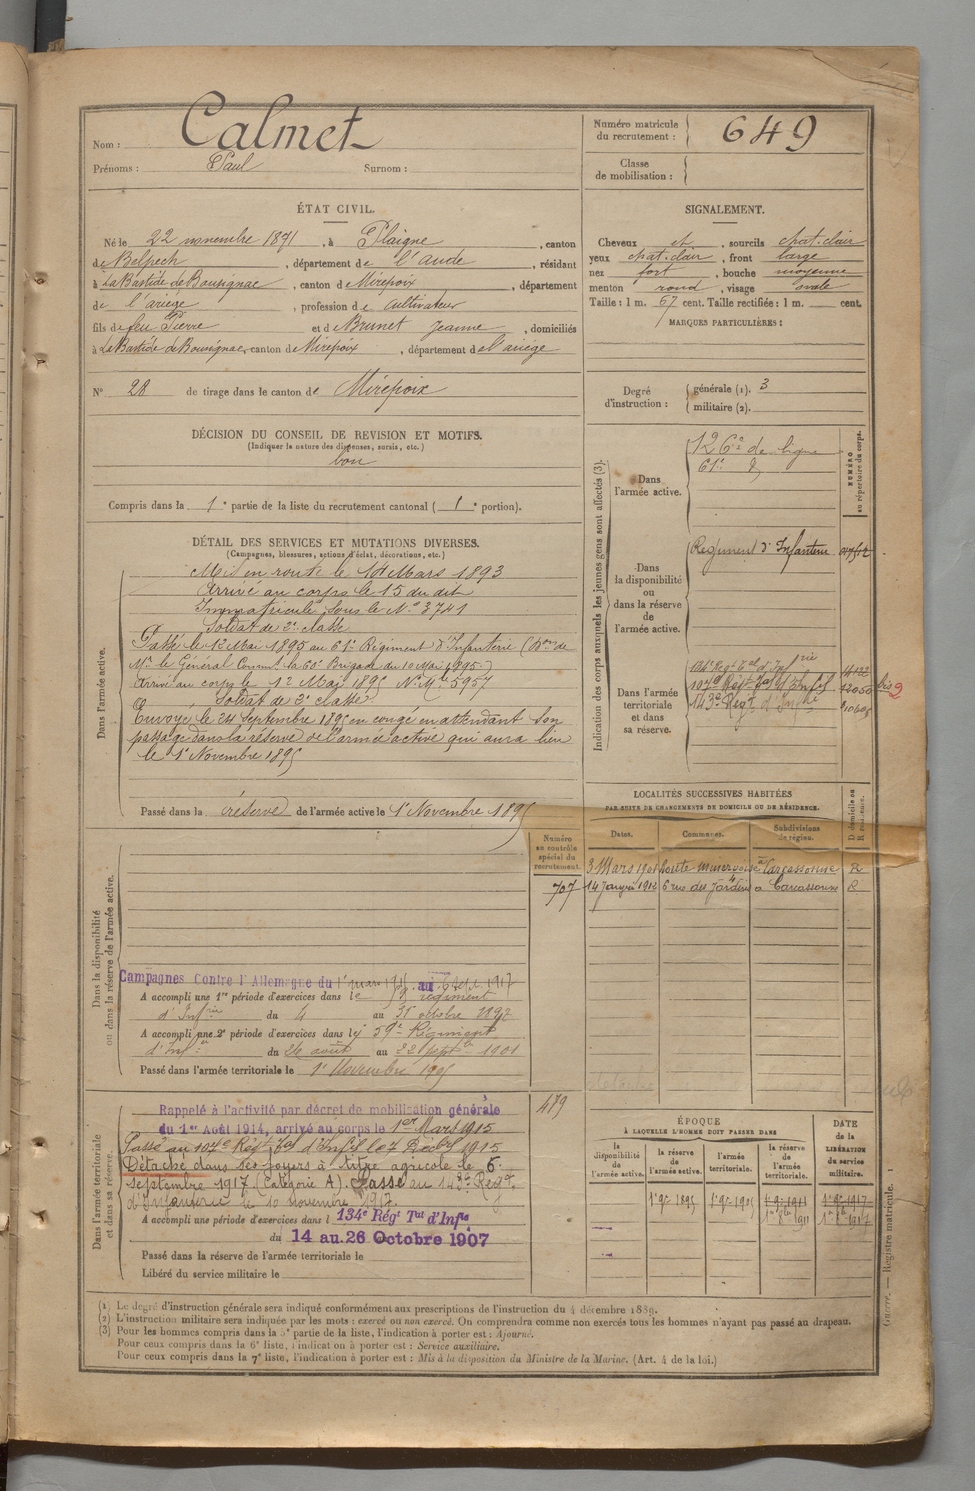 Nom : Calmet
Prénoms : Paul Surnom :
Numéro matricule du recrutement : 649
Classe de mobilisation :
ÉTAT CIVIL.
Né le 22 novembre 1871, à Plaigne, canton
de Belpech, département de l'aude, résidant
à La Bastide de Bousignac, canton de Mirepoix, département
de l'ariège, profession de cultivateur
fils de feu Pierre et de Brunet Jeanne, domiciliés
à La Bastide de Bousignac, canton de Mirepoix, département de l'ariège
N° 28 de tirage dans le canton de Mirepoix
SIGNALEMENT.
Cheveux et, sourcils chat.clair
yeux chat.clair, front large
nez fort, bouche moyenne
menton rond, visage ovale
Taille : 1 m. 67 cent. Taille rectifiée : 1 m. cent.
MARQUES PARTICULIÈRES :
Degré d'instruction : générale (1). 3
militaire (2).
DÉCISION DU CONSEIL DE REVISION ET MOTIFS.
(Indiquer la nature des dispenses, sursis, etc.)
bon
Compris dans la 1e partie de la liste du recrutement cantonal (1e portion).
DÉTAIL DES SERVICES ET MUTATIONS DIVERSES.
(Campagnes, blessures, actions d'éclat, décorations, etc.)
Dans l'armée active.
Mis en route le Mars 1893
Arrivé au corps le 15 du dit
Immatriculé sous le N° 3741
Soldat de 2e classe
Passé le 12 Mai 1895 au 61e Régiment d'Infanterie (Don de
Mr le Général Commt la 60e Brigade du 10 Mai 1895)
Arrivé au corps le 12 Mai 1895 N° Mle 5957
Soldat de 2e classe
Envoyé le 24 Septembre 1895 en congé en attendant son
passage dans la réserve de l'armée active qui aura lieu
le 1e Novembre 1895
Passé dans la réserve de l'armée active le 1e Novembre 1895
Indication des corps auxquels les jeunes gens sont affectés (3).
NUMÉRO au répertoire du corps.
Dans l'armée active.
126e de ligne
61e
Dans la disponibilité ou dans la réserve de l'armée active.
Régiment d'Infanterie
Dans l'armée territoriale et dans sa réserve.
134e Régt Tal d'Infrie
107e Régt Tal d'Infie 12050 bis 2
143e Régt d'Infie
LOCALITÉS SUCCESSIVES HABITÉES
PAR SUITE DE CHANGEMENTS DE DOMICILE OU DE RÉSIDENCE.
Dates. Communes. Subdivisions de région. D domicile ou R résidence.
3 Mars 1901 route minervoise à Carcassonne R
14 Janvier 1912 6 rue des Jardins à Carcassonne R
Numéro au contrôle spécial du recrutement.
707
Dans la disponibilité ou dans la réserve de l'armée active.
Campagnes Contre l'Allemagne du 1er mars 1915 au 6 Sept 1917
A accompli une 1re période d'exercices dans le régiment
d'Infrie du 4 au 31 octobre 1897
A accompli une 2e période d'exercices dans le 59e Régiment
d'Infie du 26 août au 22 septbre 1901
Passé dans l'armée territoriale le 1e Novembre 1905
479
Dans l'armée territoriale et dans sa réserve.
Rappelé à l'activité par décret de mobilisation générale
du 1er Août 1914, arrivé au corps le 1er Mars 1915
Passé au 107e Régt Tal d'Infie le 7 1915
Détaché dans ses foyers à titre agricole le 6
septembre 1917 (Catégorie A). Passé au 143e Régt
d'Infanterie le 10 novembre 1917
A accompli une période d'exercices dans l 134e Régt Tal d'Infie
du 14 au 26 Octobre 1907
Passé dans la réserve de l'armée territoriale le
Libéré du service militaire le
ÉPOQUE
À LAQUELLE L'HOMME DOIT PASSER DANS
la disponibilité de l'armée active.
la réserve de l'armée active.
l'armée territoriale.
la réserve de l'armée territoriale.
DATE de la LIBÉRATION du service militaire.
1e 9bre 1895 1e 9bre 1905 1e 9bre 1911 1e 9bre 1917
1e 8bre 1911 1e 8bre 1917
Guerre. — Registre matricule. 1
(1) Le degré d'instruction générale sera indiqué conformément aux prescriptions de l'instruction du 4 décembre 1889.
(2) L'instruction militaire sera indiquée par les mots : exercé ou non exercé. On comprendra comme non exercés tous les hommes n'ayant pas passé au drapeau.
(3) Pour les hommes compris dans la 5e partie de la liste, l'indication à porter est : Ajourné.
Pour ceux compris dans la 6e liste, l'indication à porter est : Service auxiliaire.
Pour ceux compris dans la 7e liste, l'indication à porter est : Mis à la disposition du Ministre de la Marine. (Art. 4 de la loi.)